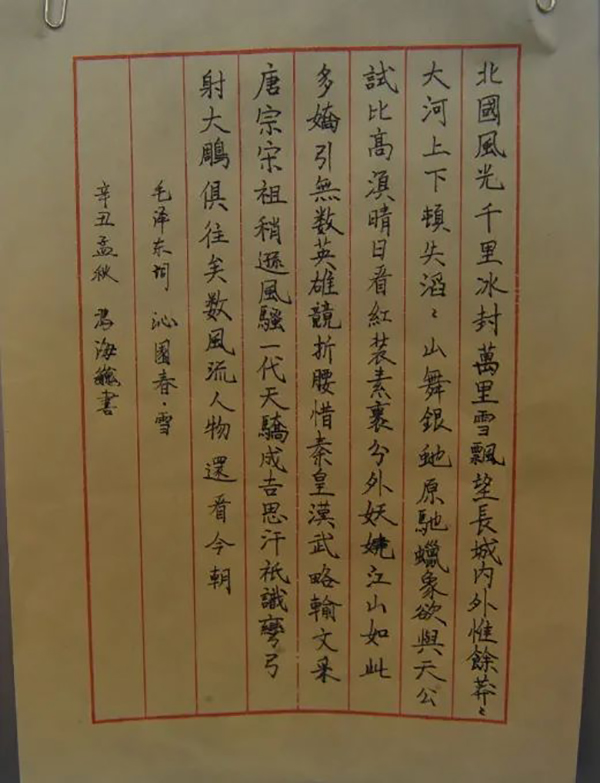 北國風光千里冰封萬里雪飄望長城内外惟餘莽〻
大河上下頓失滔〻山舞銀虵原馳蠟象欲與天公
試比高湏晴日看紅裝素裹分外妖娆江山如此
多嬌引無数英雄競折腰惜秦皇漢武略輸文采
唐宗宋祖稍遜風騷一代天驕成吉思汗衹識彎弓
射大鵰俱往矣数風流人物還看今朝
毛泽东词 沁園春·雪
辛丑孟秋 馮海 書